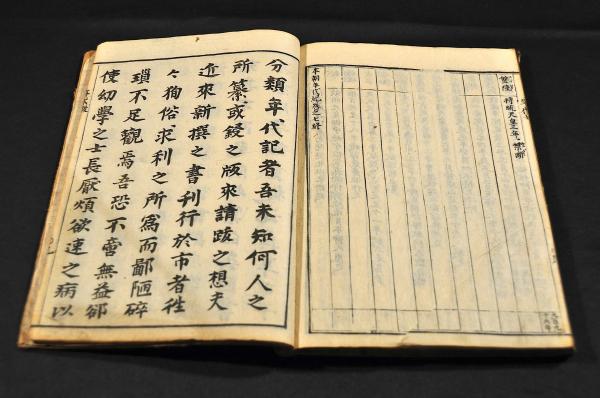 天皇三年
本朝年代記卷之七終
分類年代記者吾未知何人之
所纂或鋟之版來請跋之想夫
近來新撰之書刊行於市者徃
々狥俗求利之所爲而鄙陋碎
瑣不足觀焉吾恐不啻無益郤
使幼學之士長厭煩欲速之病以